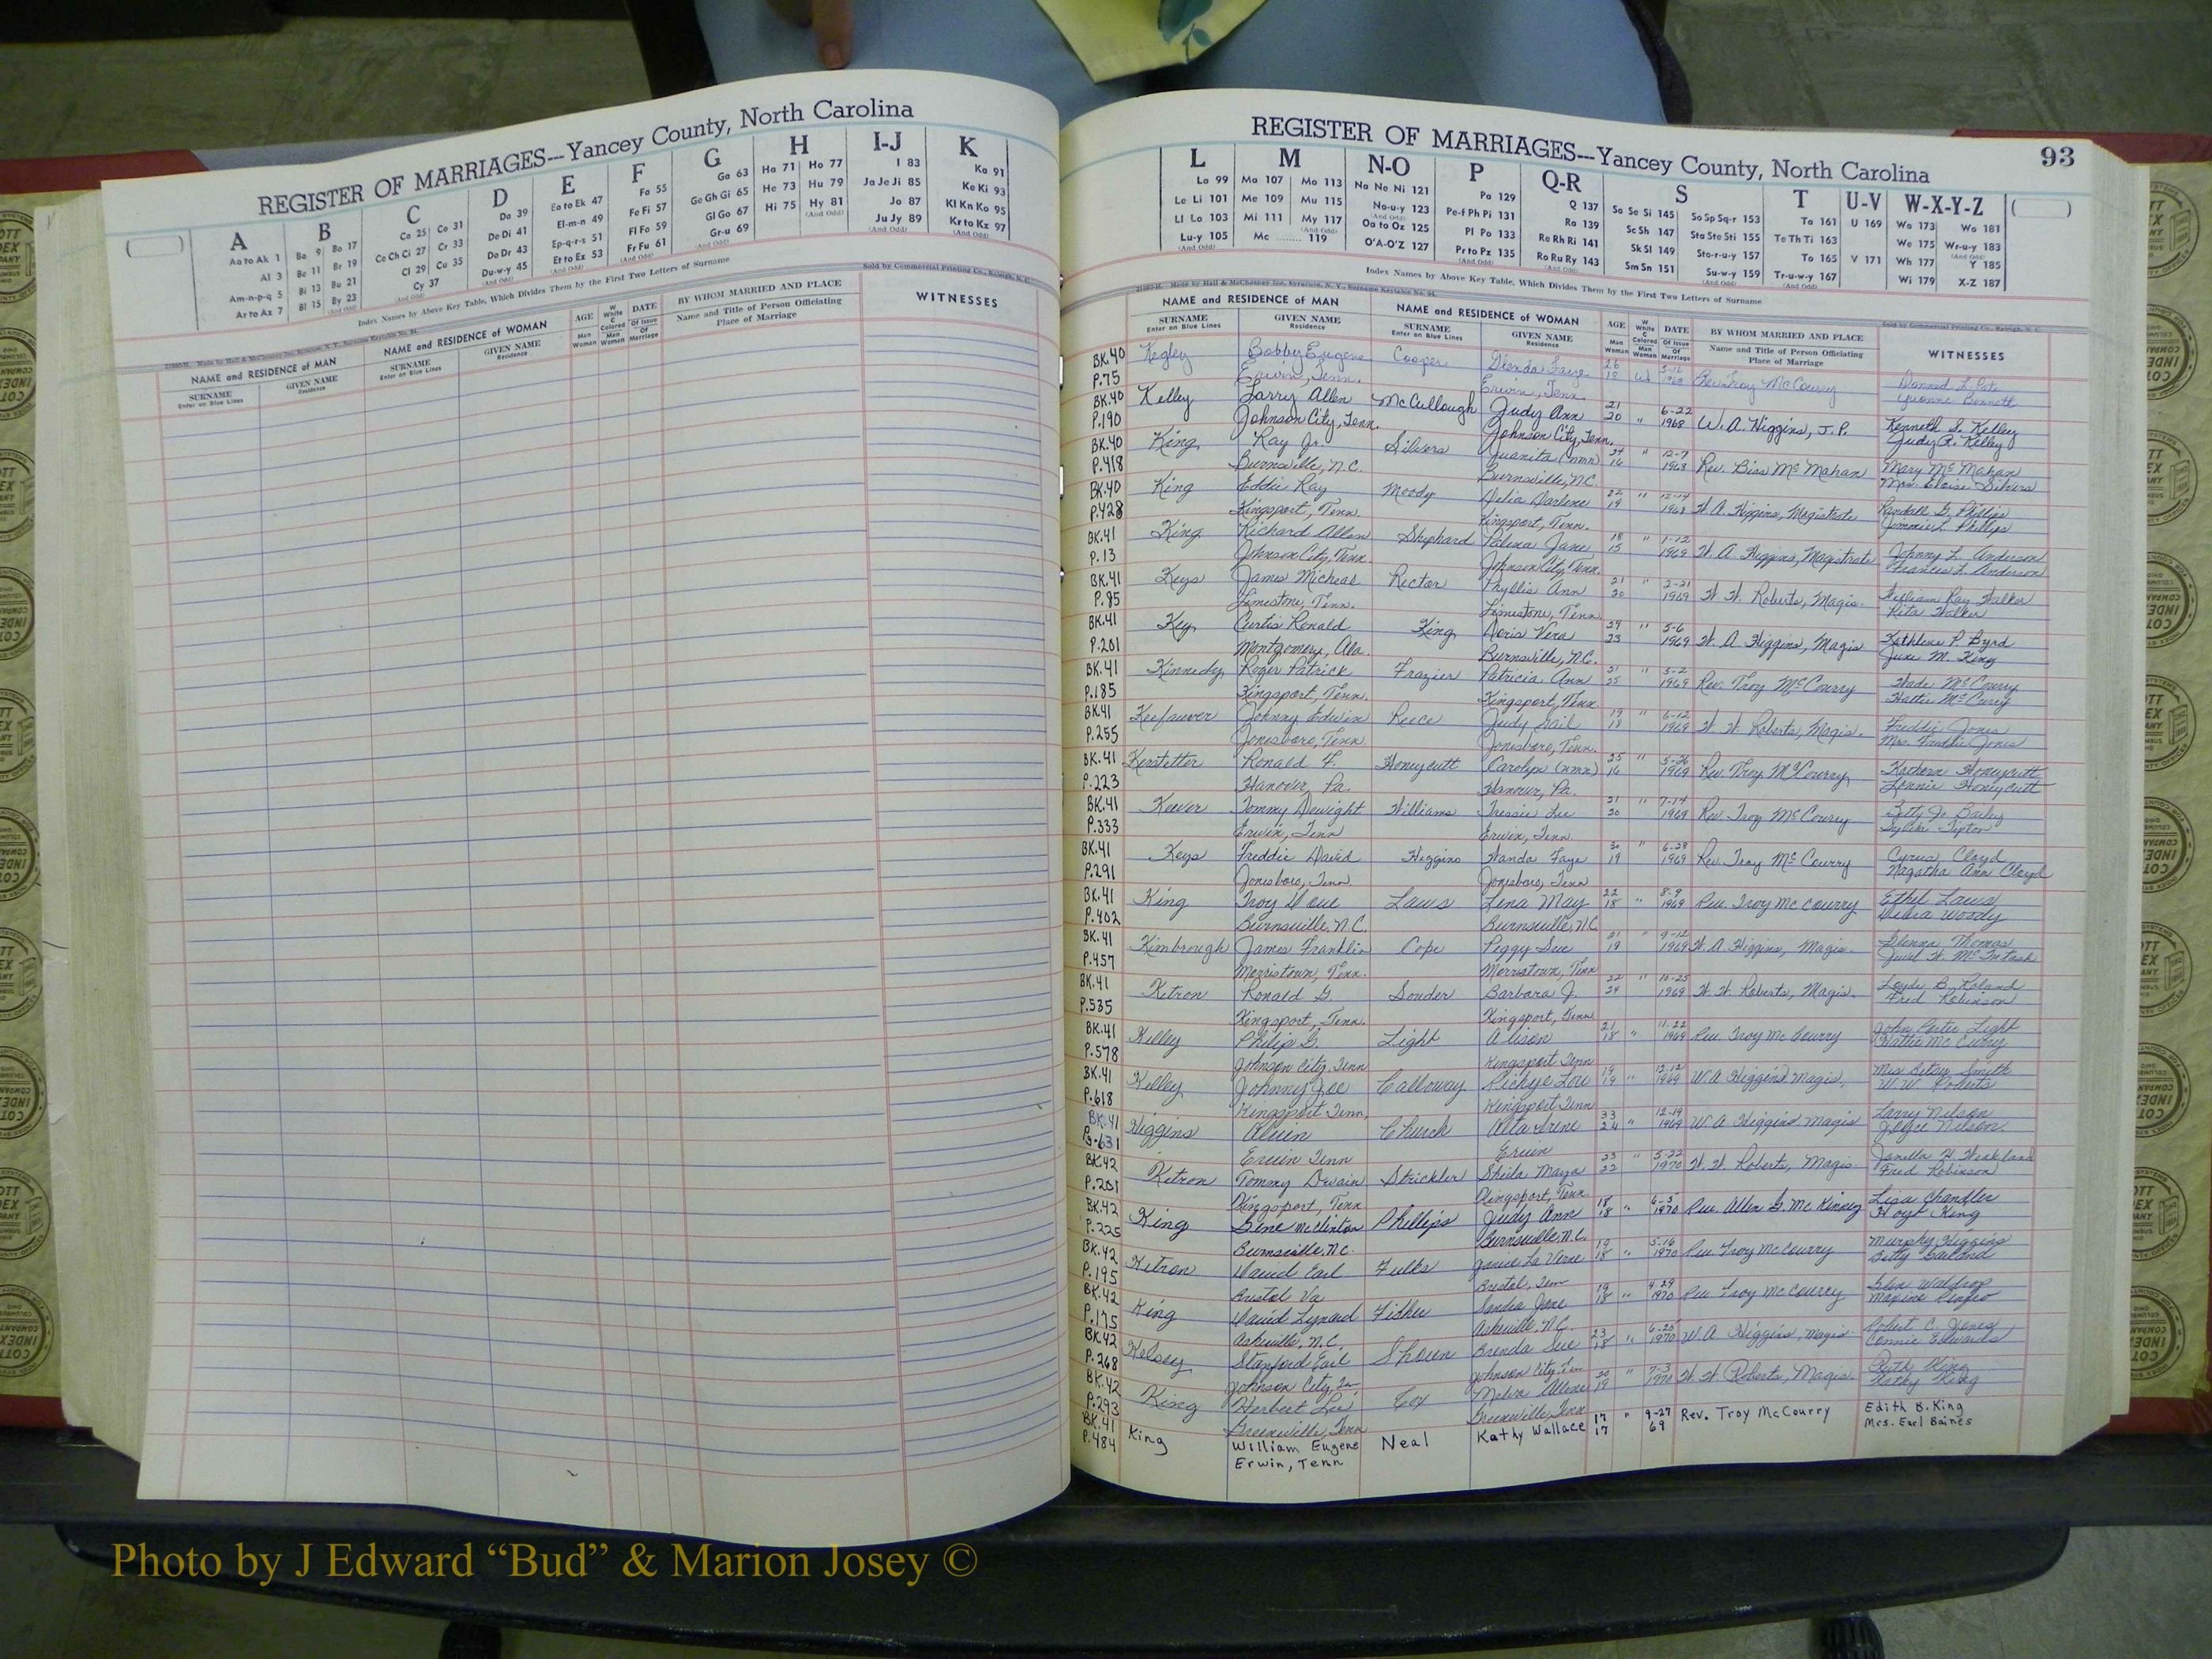 REGISTER OF MARRIAGES---Yancey County, North Carolina
A
Aa to Ak 1
Al 3
Am-n-p-q 5
Ar to Az 7
B
Ba 9 Bo 17
Be 11 Br 19
Bi 13 Bu 21
Bl 15 By 23
(And Odd)
C
Ca 25 Co 31
Ce Ch Ci 27 Cr 33
Cl 29 Cu 35
Cy 37
(And Odd)
D
Da 39
De Di 41
Do Dr 43
Du-w-y 45
(And Odd)
E
Ea to Ek 47
El-m-n 49
Ep-q-r-s 51
Et to Ez 53
(And Odd)
F
Fa 55
Fe Fi 57
Fl Fo 59
Fr Fu 61
(And Odd)
G
Ga 63
Ge Gh Gi 65
Gl Go 67
Gr-u 69
(And Odd)
H
Ha 71 Ho 77
He 73 Hu 79
Hi 75 Hy 81
(And Odd)
I-J
I 83
Ja Je Ji 85
Jo 87
Ju Jy 89
(And Odd)
K
Ka 91
Ke Ki 93
Kl Kn Ko 95
Kr to Kz 97
(And Odd)
Index Names by Above Key Table, Which Divides Them by the First Two Letters of Surname
Sold by Commercial Printing Co., Raleigh, N. C.
NAME and RESIDENCE of MAN
SURNAME
Enter on Blue Lines
GIVEN NAME
Residence
NAME and RESIDENCE of WOMAN
SURNAME
Enter on Blue Lines
GIVEN NAME
Residence
AGE
Man
Woman
W
White
C
Colored
Man
Woman
DATE
Of Issue
Of
Marriage
BY WHOM MARRIED AND PLACE
Name and Title of Person Officiating
Place of Marriage
WITNESSES
REGISTER OF MARRIAGES---Yancey County, North Carolina
93
L
La 99
Le Li 101
Ll Lo 103
Lu-y 105
(And Odd)
M
Ma 107 Mo 113
Me 109 Mu 115
Mi 111 My 117
(And Odd)
Mc 119
N-O
Na Ne Ni 121
No-u-y 123
(And Odd)
Oa to Oz 125
O'A-O'Z 127
P
Pa 129
Pe-f Ph Pi 131
Pl Po 133
Pr to Pz 135
(And Odd)
Q-R
Q 137
Ra 139
Re Rh Ri 141
Ro Ru Ry 143
(And Odd)
S
Sa Se Si 145 So Sp Sq-r 153
Sc Sh 147 Sta Ste Sti 155
Sk Sl 149 Sto-r-u-y 157
Sm Sn 151 Su-w-y 159
(And Odd)
T
Ta 161
Te Th Ti 163
To 165
Tr-u-w-y 167
(And Odd)
U-V
U 169
V 171
W-X-Y-Z
Wa 173 Wo 181
We 175 Wr-u-y 183
(And Odd)
Wh 177 Y 185
Wi 179 X-Z 187
Index Names by Above Key Table, Which Divides Them by the First Two Letters of Surname
Made by Hall & McChesney Inc. Syracuse, N. Y.
Sold by Commercial Printing Co., Raleigh, N. C.
NAME and RESIDENCE of MAN
SURNAME
Enter on Blue Lines
GIVEN NAME
Residence
NAME and RESIDENCE of WOMAN
SURNAME
Enter on Blue Lines
GIVEN NAME
Residence
AGE
Man
Woman
W
White
C
Colored
Man
Woman
DATE
Of Issue
Of
Marriage
BY WHOM MARRIED AND PLACE
Name and Title of Person Officiating
Place of Marriage
WITNESSES
BK.40 Kegley Bobby Eugene Cooper Glenda Faye 26 W
P.75 Erwin, Tenn. Erwin, Tenn. 18 1968 Rev. Troy McCourry Yvonne Bennett
BK.40 Kelley Larry Allen McCullough Judy Ann 21 " 6-22 W. A. Higgins, J. P. Kenneth S. Kelley
P.190 Johnson City, Tenn. Johnson City, Tenn. 20 1968 Judy A. Kelley
BK.40 King Ray Jr. Silvers Juanita (nmn) 24 " 12-7 Rev. Biss McMahan Mary McMahan
P.418 Burnsville, N.C. Burnsville, N.C. 16 1968 Mrs. Eloise Silvers
BK.40 King Eddie Ray Moody Delia Darlene 22 " 12-14 W. A. Higgins, Magistrate Randall G. Phillips
P.428 Kingsport, Tenn. Kingsport, Tenn. 19 1968 Jimmie L. Phillips
BK.41 King Richard Allen Shephard Palina Jane 18 " 1-12 W. A. Higgins, Magistrate Johnny L. Anderson
P.13 Johnson City, Tenn. Johnson City, Tenn. 15 1969 Frances L. Anderson
BK.41 Keys James Micheal Rector Phyllis Ann 21 " 2-21 W. W. Roberts, Magis. William Ray Walker
P.85 Limestone, Tenn. Limestone, Tenn. 20 1969 Rita Walker
BK.41 Key Curtis Ronald King Doris Vera 29 " 5-6 W. A. Higgins, Magis Kathleen P. Byrd
P.201 Montgomery, Ala. Burnsville, N.C. 23 1969 June M. King
BK.41 Kinnedy Roger Patrick Frazier Patricia Ann " 5-2 Rev. Troy McCourry Wade McCourry
P.185 Kingsport, Tenn. Kingsport, Tenn. 25 1969 Hattie McCurry
BK.41 Keefauver Johnny Edwin Reece Judy Gail 19 " 6-12 W. W. Roberts, Magis. Freddie Jones
P.255 Jonesboro, Tenn. Jonesboro, Tenn. 18 1969 Mrs. Freddie Jones
BK.41 Kerstetter Ronald F. Honeycutt Carolyn (nmn) 25 " 5-26 Rev. Troy McCourry Kathern Honeycutt
P.223 Hanover, Pa. Hanover, Pa. 16 1969 Lonnie Honeycutt
BK.41 Keever Tommy Dewight Williams Tressie Lee 21 " 7-14 Rev. Troy McCourry Betty Jo Bailey
P.333 Erwin, Tenn Erwin, Tenn. 20 1969 Tipton
BK.41 Keys Freddie David Higgins Wanda Faye 20 " 6-28 Rev. Troy McCourry Cyrus Cloyd
P.291 Jonesboro, Tenn. Jonesboro, Tenn 19 1969 Nagatha Ann Cloyd
BK.41 King Troy Dove Laws Lena May 22 " 8-9 Rev. Troy McCourry Ethel Laws
P.402 Burnsville, N.C. Burnsville, N.C 18 1969 Woody
BK.41 Kimbrough James Franklin Cope Peggy Sue 21 " 9-12 W. A. Higgins, Magis. Glenna Thomas
P.457 Morristown, Tenn. Morristown, Tenn 19 1969 Jewel W. McIntosh
BK.41 Ketron Ronald G. Souder Barbara J. 22 " 10-25 W. W. Roberts, Magis. Loyde B. Roland
P.535 Kingsport, Tenn. Kingsport, Tenn 24 1969 Fred Robinson
BK.41 Kelley Philip G. Light Alison 21 " 11-22 Rev Troy McCourry John Porter Light
P.578 Johnson City, Tenn Kingsport Tenn 18 1969 Hattie McCurry
BK.41 Kelley Johnny Joe Calloway Rickye Lou 19 " 12-12 W. A Higgins Magis. Mrs Betsy Smith
P.618 Kingsport Tenn Kingsport Tenn 19 1969 W. W. Roberts
BK.41 Higgins Alvin Church Alta Irene 33 " 12-19 W. A Higgins magis Larry Nelson
P.631 Erwin Tenn Erwin 24 1969 Joyce Nelson
BK.42 Ketron Tommy Dwain Strickler Sheila Maya 23 " 5-22 W. W. Roberts, Magis.
P.201 Kingsport, Tenn Kingsport, Tenn 22 1970 Fred Robinson
BK.42 King Gene McClinton Phillips Judy Ann 18 " 6-5 Rev. Allen G. McKinney Lisa Chandler
P.225 Burnsville, N.C. Burnsville, N.C. 18 1970 Hoyt King
BK.42 Ketron David Earl Fulks Janice La Verne 19 " 5-16 Rev. Troy McCourry Murphy Higgins
P.195 Bristol Va Bristol, Tenn 18 1970 Betty Garland
BK.42 King David Lynard Fisher Sandra Jane 19 " 4 29 Rev Troy McCourry Glen Waldrop
P.175 Asheville, N.C. Asheville, N.C. 18 1970 Maxine
BK.42 Kelsey Stanford Earl Shoun Brenda Sue 23 " 6-25 W. A Higgins, Magis Robert C. Jones
P.268 Johnson City, Tn Johnson City, Tn 18 1970 Connie Edwards
BK.42 King Herbert Lee Cox Melva Allene 20 " 7-3 W. W. Roberts, Magis. Ruth King
P.293 Greeneville, Tenn Greeneville, Tenn 19 1970 Kathy King
BK.41 King William Eugene Neal Kathy Wallace 17 " 9-27 Rev. Troy McCourry Edith B. King
P.484 Erwin, Tenn 17 69 Mrs. Earl Baines
Photo by J Edward “Bud” & Marion Josey ©